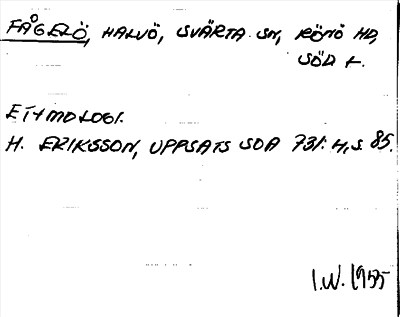 FÅGELÖ, HALVÖ, SVÄRTA SN, RÖNÖ HD,
SÖD L.
ETYMOLOGI.
H. ERIKSSON, UPPSATS SOA 731: 4, S. 85.
I.W. 1955